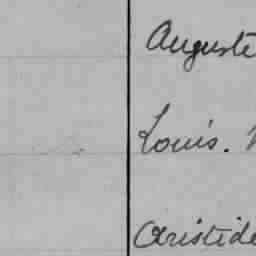 Auguste
Louis.
Aristide